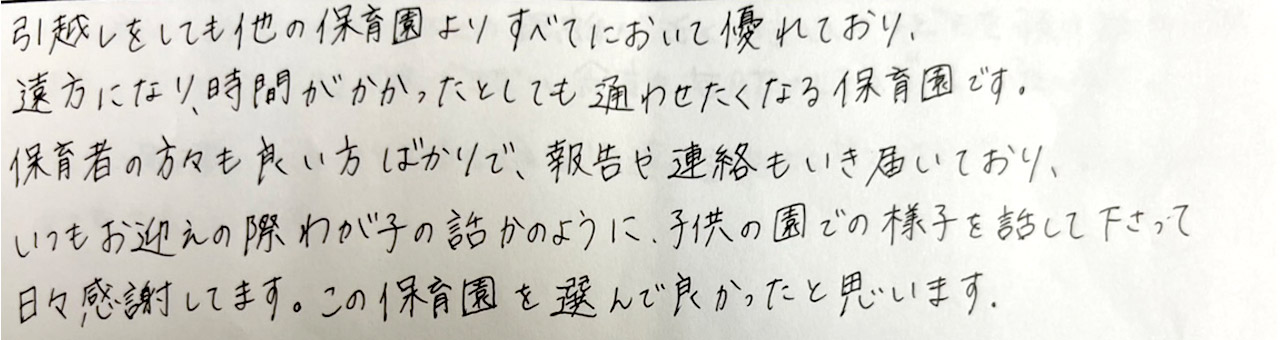 引越しをしても他の保育園よりすべてにおいて優れており、
遠方になり、時間がかかったとしても通わせたくなる保育園です。
保育者の方々も良い方ばかりで、報告や連絡もいき届いており、
いつもお迎えの際わが子の話かのように、子供の園での様子を話して下さって
日々感謝してます。この保育園を選んで良かったと思います.